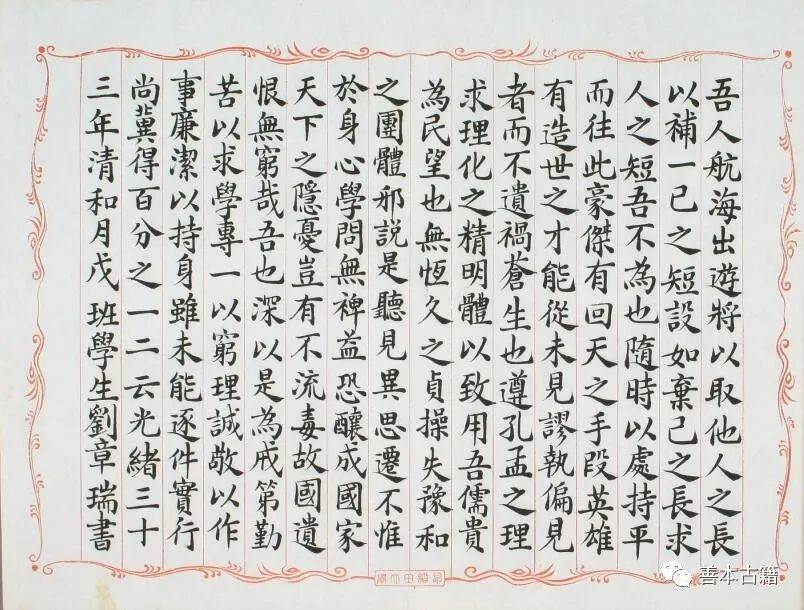 吾人航海出遊將以取他人之長
以補一己之短設如棄己之長求
人之短吾不為也隨時以處持平
而往此豪傑有回天之手段英雄
有造世之才能從未見謬執偏見
者而不遺禍蒼生也遵孔孟之理
求理化之精明體以致用吾儒貴
為民望也無恆久之貞操失豫和
之團體邪說是聽見異思遷不惟
於身心學問無裨益恐釀成國家
天下之隱憂豈有不流毒故國遺
恨無窮哉吾也深以是為戒第勤
苦以求學專一以窮理誠敬以作
事廉潔以持身雖未能逐件實行
尚冀得百分之一二云光緒三十
三年清和月戊班學生劉章瑞書
善本古籍